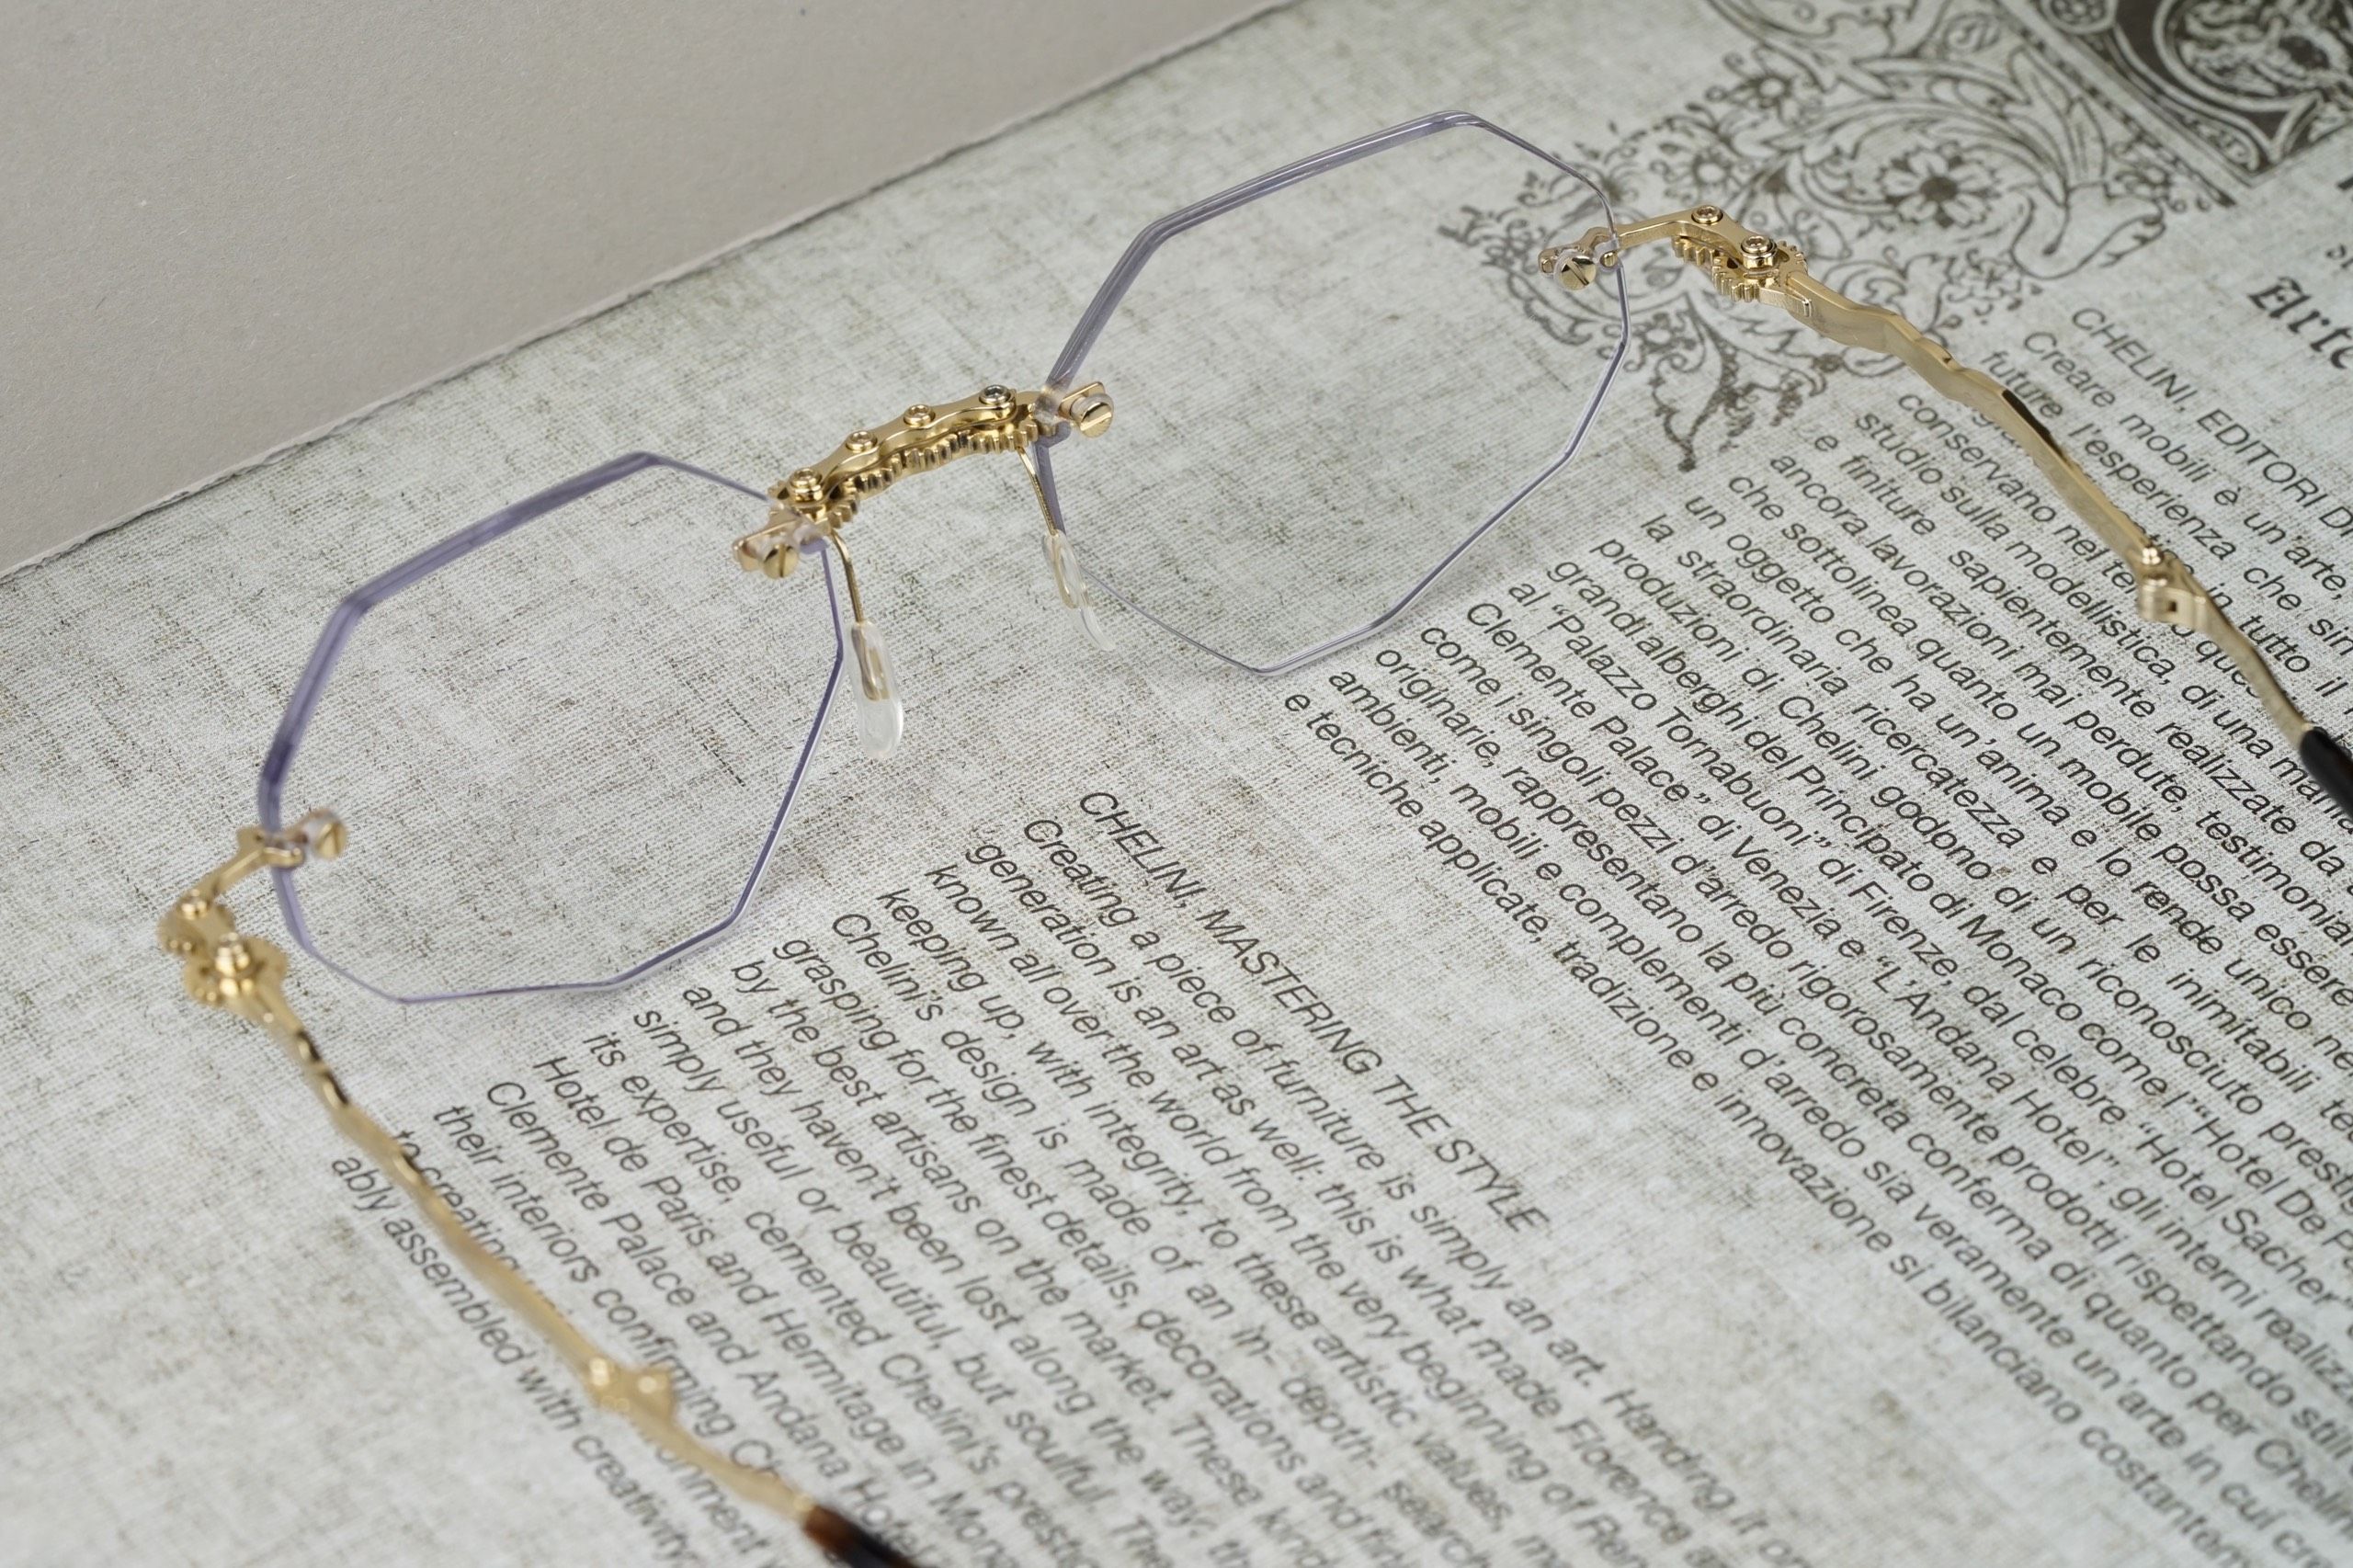 Arte
CHELINI, EDITORI DI
Creare mobili è un'arte,
future l'esperienza che sin
in tutto il
conservano nel
studio sulla modellistica, di una
e finiture sapientemente realizzate da
ancora lavorazioni mai perdute, testimonian
che sottolinea quanto un mobile possa essere
un oggetto che ha un'anima e lo rende unico
la straordinaria ricercatezza e per le inimitabili
produzioni di Chelini godono di un riconosciuto
grandi alberghi del Principato di Monaco come l'"Hotel De
al "Palazzo Tornabuoni" di Firenze, dal celebre "Hotel Sacher"
Clemente Palace" di Venezia e "L'Andana Hotel", gli interni
come i singoli pezzi d'arredo rigorosamente prodotti rispettando stili
originarie, rappresentano la più concreta conferma di quanto per Chelin
ambienti, mobili e complementi d'arredo sia veramente un'arte in cui
e tecniche applicate, tradizione e innovazione si bilanciano
CHELINI, MASTERING THE STYLE
Creating a piece of furniture is simply an art. Handing it
generation is an art as well: this is what made Florence
known all over the world from the very beginning of
keeping up, with integrity, to these artistic values,
Chelini's design is made of an in- depth- search
grasping for the finest details, decorations and
by the best artisans on the market. These
and they haven't been lost along the way:
simply useful or beautiful, but soulful.
its expertise, cemented Chelini's
Hotel de Paris and Hermitage in
Clemente Palace and Andana
their interiors confirming
to creating
ably assembled with creativity